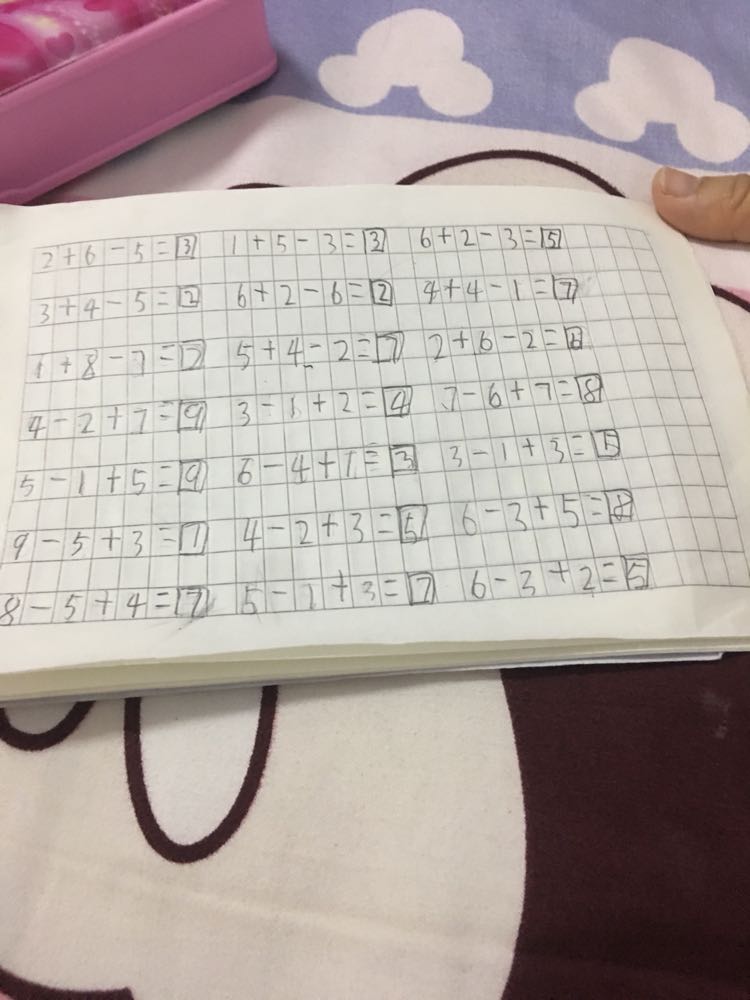 2+6-5=3 1+5-3=3 6+2-3=5
3+4-5=2 6+2-6=2 4+4-1=7
1+8-7=2 5+4-2=7 2+6-2=6
4-2+7=9 3-1+2=4 7-6+7=8
5-1+5=9 6-4+1=3 3-1+3=5
9-5+3=7 4-2+3=5 6-3+5=8
8-5+4=7 5-1+3=7 6-3+2=5